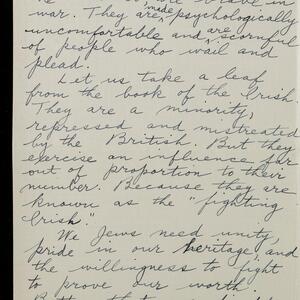 war. They are made psychologically
uncomfortable and are scornful
of people who wail and
plead.
Let us take a leaf
from the book of the Irish.
They are a minority,
repressed and mistreated
by the British. But they
exercise an influence far
out of proportion to their
number. Because they are
known as the "fighting
Irish."
We Jews need unity,
pride in our heritage, and
the willingness to fight
to prove our worth.